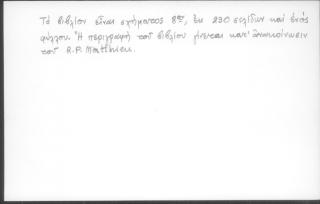 Τό βιβλίον εἶναι σχήματος 8ον, ἐκ 230 σελίδων καί ἑνός
φύλλου. Ἡ περιγραφή τοῦ βιβλίου γίνεται κατ' ἀνακοίνωσιν
τοῦ R.P. Matthieu.